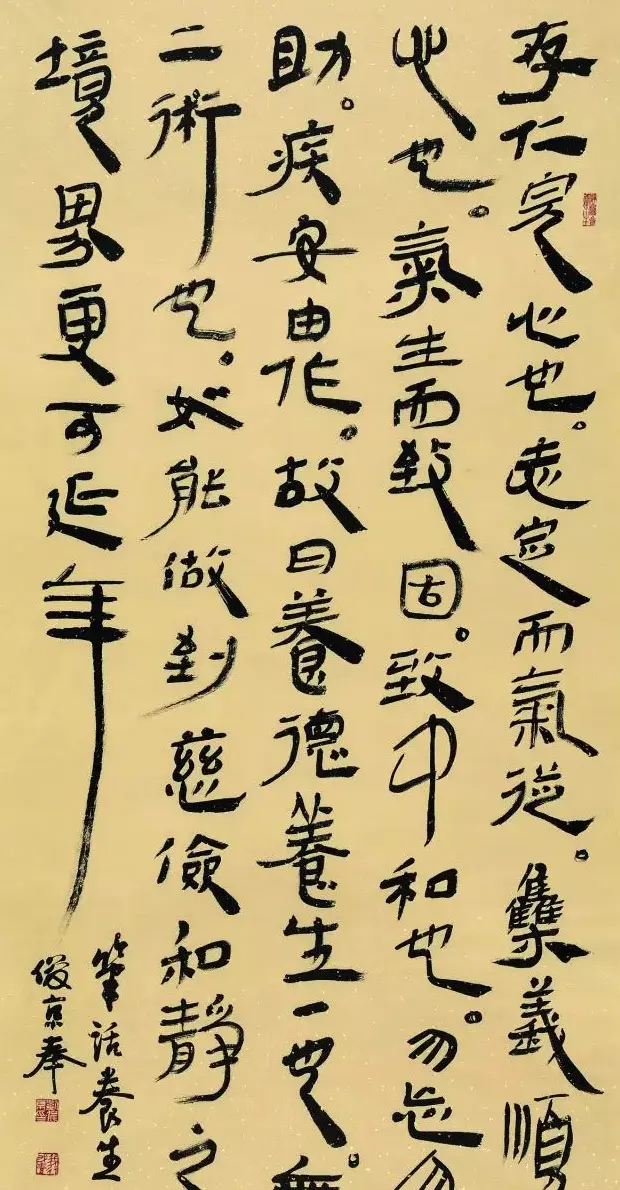 存仁完心也。志定而氣從。集義順
心也。氣生而致固。致中和也。勿忘勿
助。疾安由作。故曰養德養生一也。無
二術也。如能做到慈儉和靜之
境界更可延年
筆話養生
俊京奉